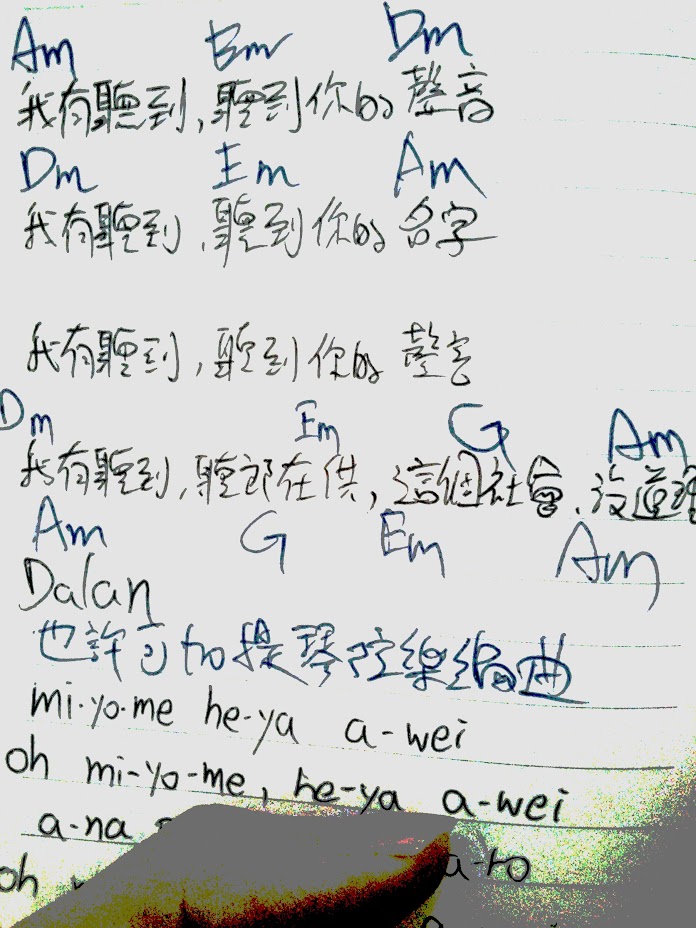 Am Em Dm
我有聽到,聽到你的聲音
Dm Em Am
我有聽到,聽到你的名字
我有聽到,聽到你的聲音
Dm Em G Am
我有聽到,聽郎在供,這個社會,沒道理
Am G Em Am
Dalan
也許可加提琴弦樂編曲
mi-yo-me he-ya a-wei
oh mi-yo-me, he-ya a-wei
a-na
oh a-ro